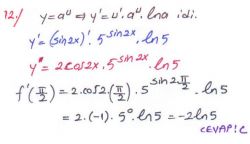 12./ y = a^u ⇒ y' = u'. a^u. lna idi.
y' = (sin2x)'. 5^sin2x. ln5
y' = 2cos2x. 5^sin2x. ln5
f'(π/2) = 2.cos2.(π/2). 5^sin2π/2. ln5
= 2.(-1). 5^0. ln5 = -2ln5
CEVAP: C